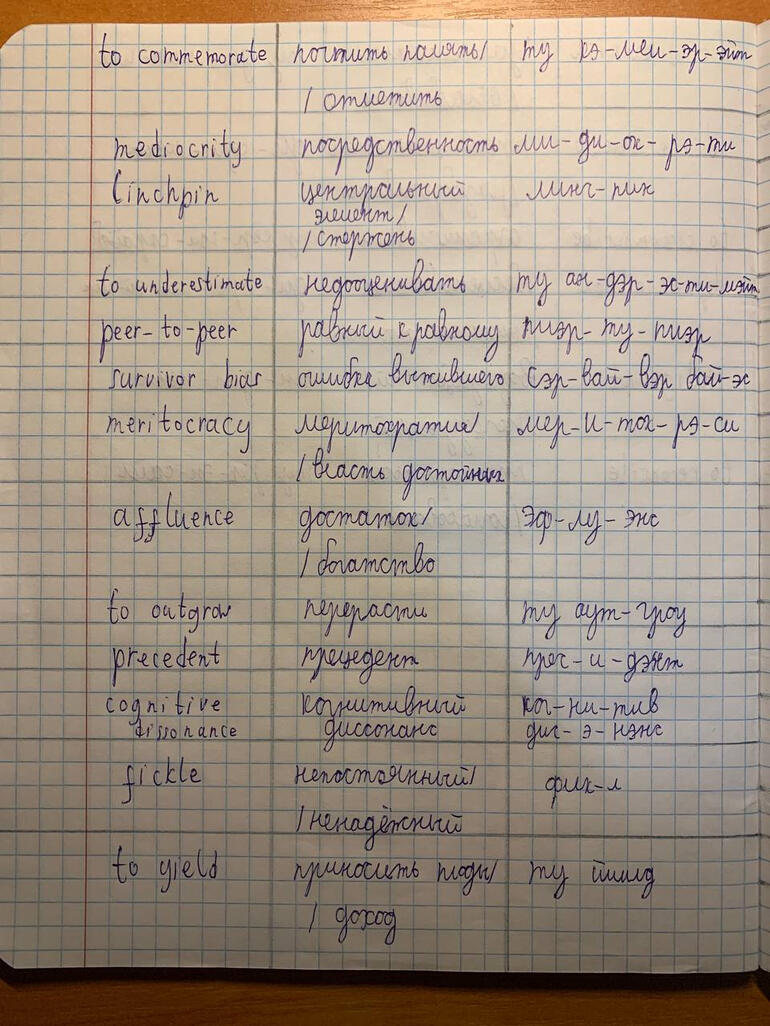 to commemorate почтить память/ ту кэ-мем-эр-эйт
/ отметить
mediocrity посредственность ми-ди-ок-рэ-ти
linchpin центральный линч-пин
элемент/
/ стержень
to underestimate недооценивать ту ан-дэр-эс-ти-мэйт
peer-to-peer равный к равному пиэр-ту-пиэр
survivor bias ошибка выжившего сэр-вай-вэр бай-эс
meritocracy меритократия/ мер-и-ток-рэ-си
/ власть достойных
affluence достаток/ эф-лу-энс
/ богатство
to outgrow перерасти ту аут-гроу
precedent прецедент прес-и-дэнт
cognitive когнитивный ког-ни-тив
dissonance диссонанс дис-э-нэнс
fickle непостоянный/ фик-л
/ ненадёжный
to yield приносить плоды/ ту йиилд
/ доход